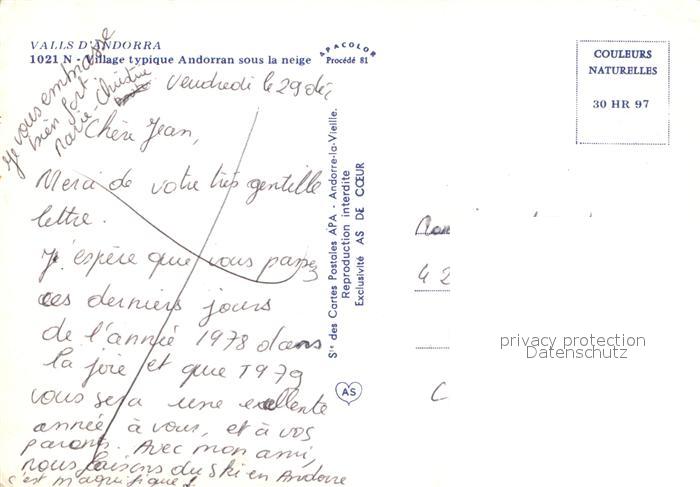 VALLS D'ANDORRA
1021 N - Village typique Andorran sous la neige
APACOLOR
Procédé 81
COULEURS
NATURELLES
30 HR 97
Je vous embrasse
bien fort
Marie-Christine
Vendredi le 29 déc
Chère Jean,
Merci de votre très gentille
lettre.
J'espère que vous passez
ces derniers jours
de l'année 1978 dans
la joie et que 1979
vous sera une excellente
année à vous, et à vos
parents. Avec mon ami,
nous faisons du ski en Andorre
c'est magnifique!
Sté des Cartes Postales APA - Andorre-la-Vieille.
Reproduction interdite
Exclusivité AS DE CŒUR
AS
42
C
privacy protection
Datenschutz